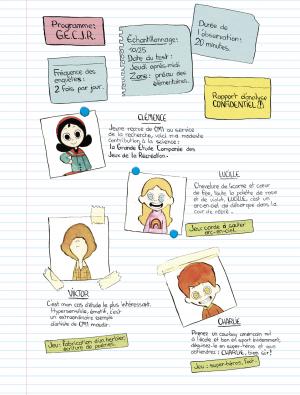 Programme:
G.E.C.J.R.
Échantillonnage:
10/25
Date du test:
Jeudi après-midi
Zone: préau des
élémentaires.
Durée de
l'observation:
20 minutes.
Fréquence des
enquêtes:
2 fois par jour.
Rapport d'analyse
CONFIDENTIEL
CLÉMENCE
Jeune recrue de CM1 au service
de la recherche, voici ma modeste
contribution à la science:
la Grande Étude Comparée des
Jeux de la Récréation.
LUCILLE
Chevelure de licorne et cœur
de fée, toute la palette de rose
et de violet, LUCILLE, c'est un
arc-en-ciel qui débarque dans la
cour de récré.
Jeu: corde à sauter
arc-en-ciel.
VIKTOR
C'est mon cas d'étude le plus intéressant.
Hypersensible, émotif, c'est
un extraordinaire exemple
d'artiste de CM1 maudit.
Jeu: fabrication d'un herbier,
écriture de poèmes.
CHARLIE
Prenez un cowboy américain nul
à l'école et bon en sport évidemment,
déguisez-le en super-héros et vous
obtiendrez: CHARLIE, bien sûr!
Jeu: super-héros, foot.